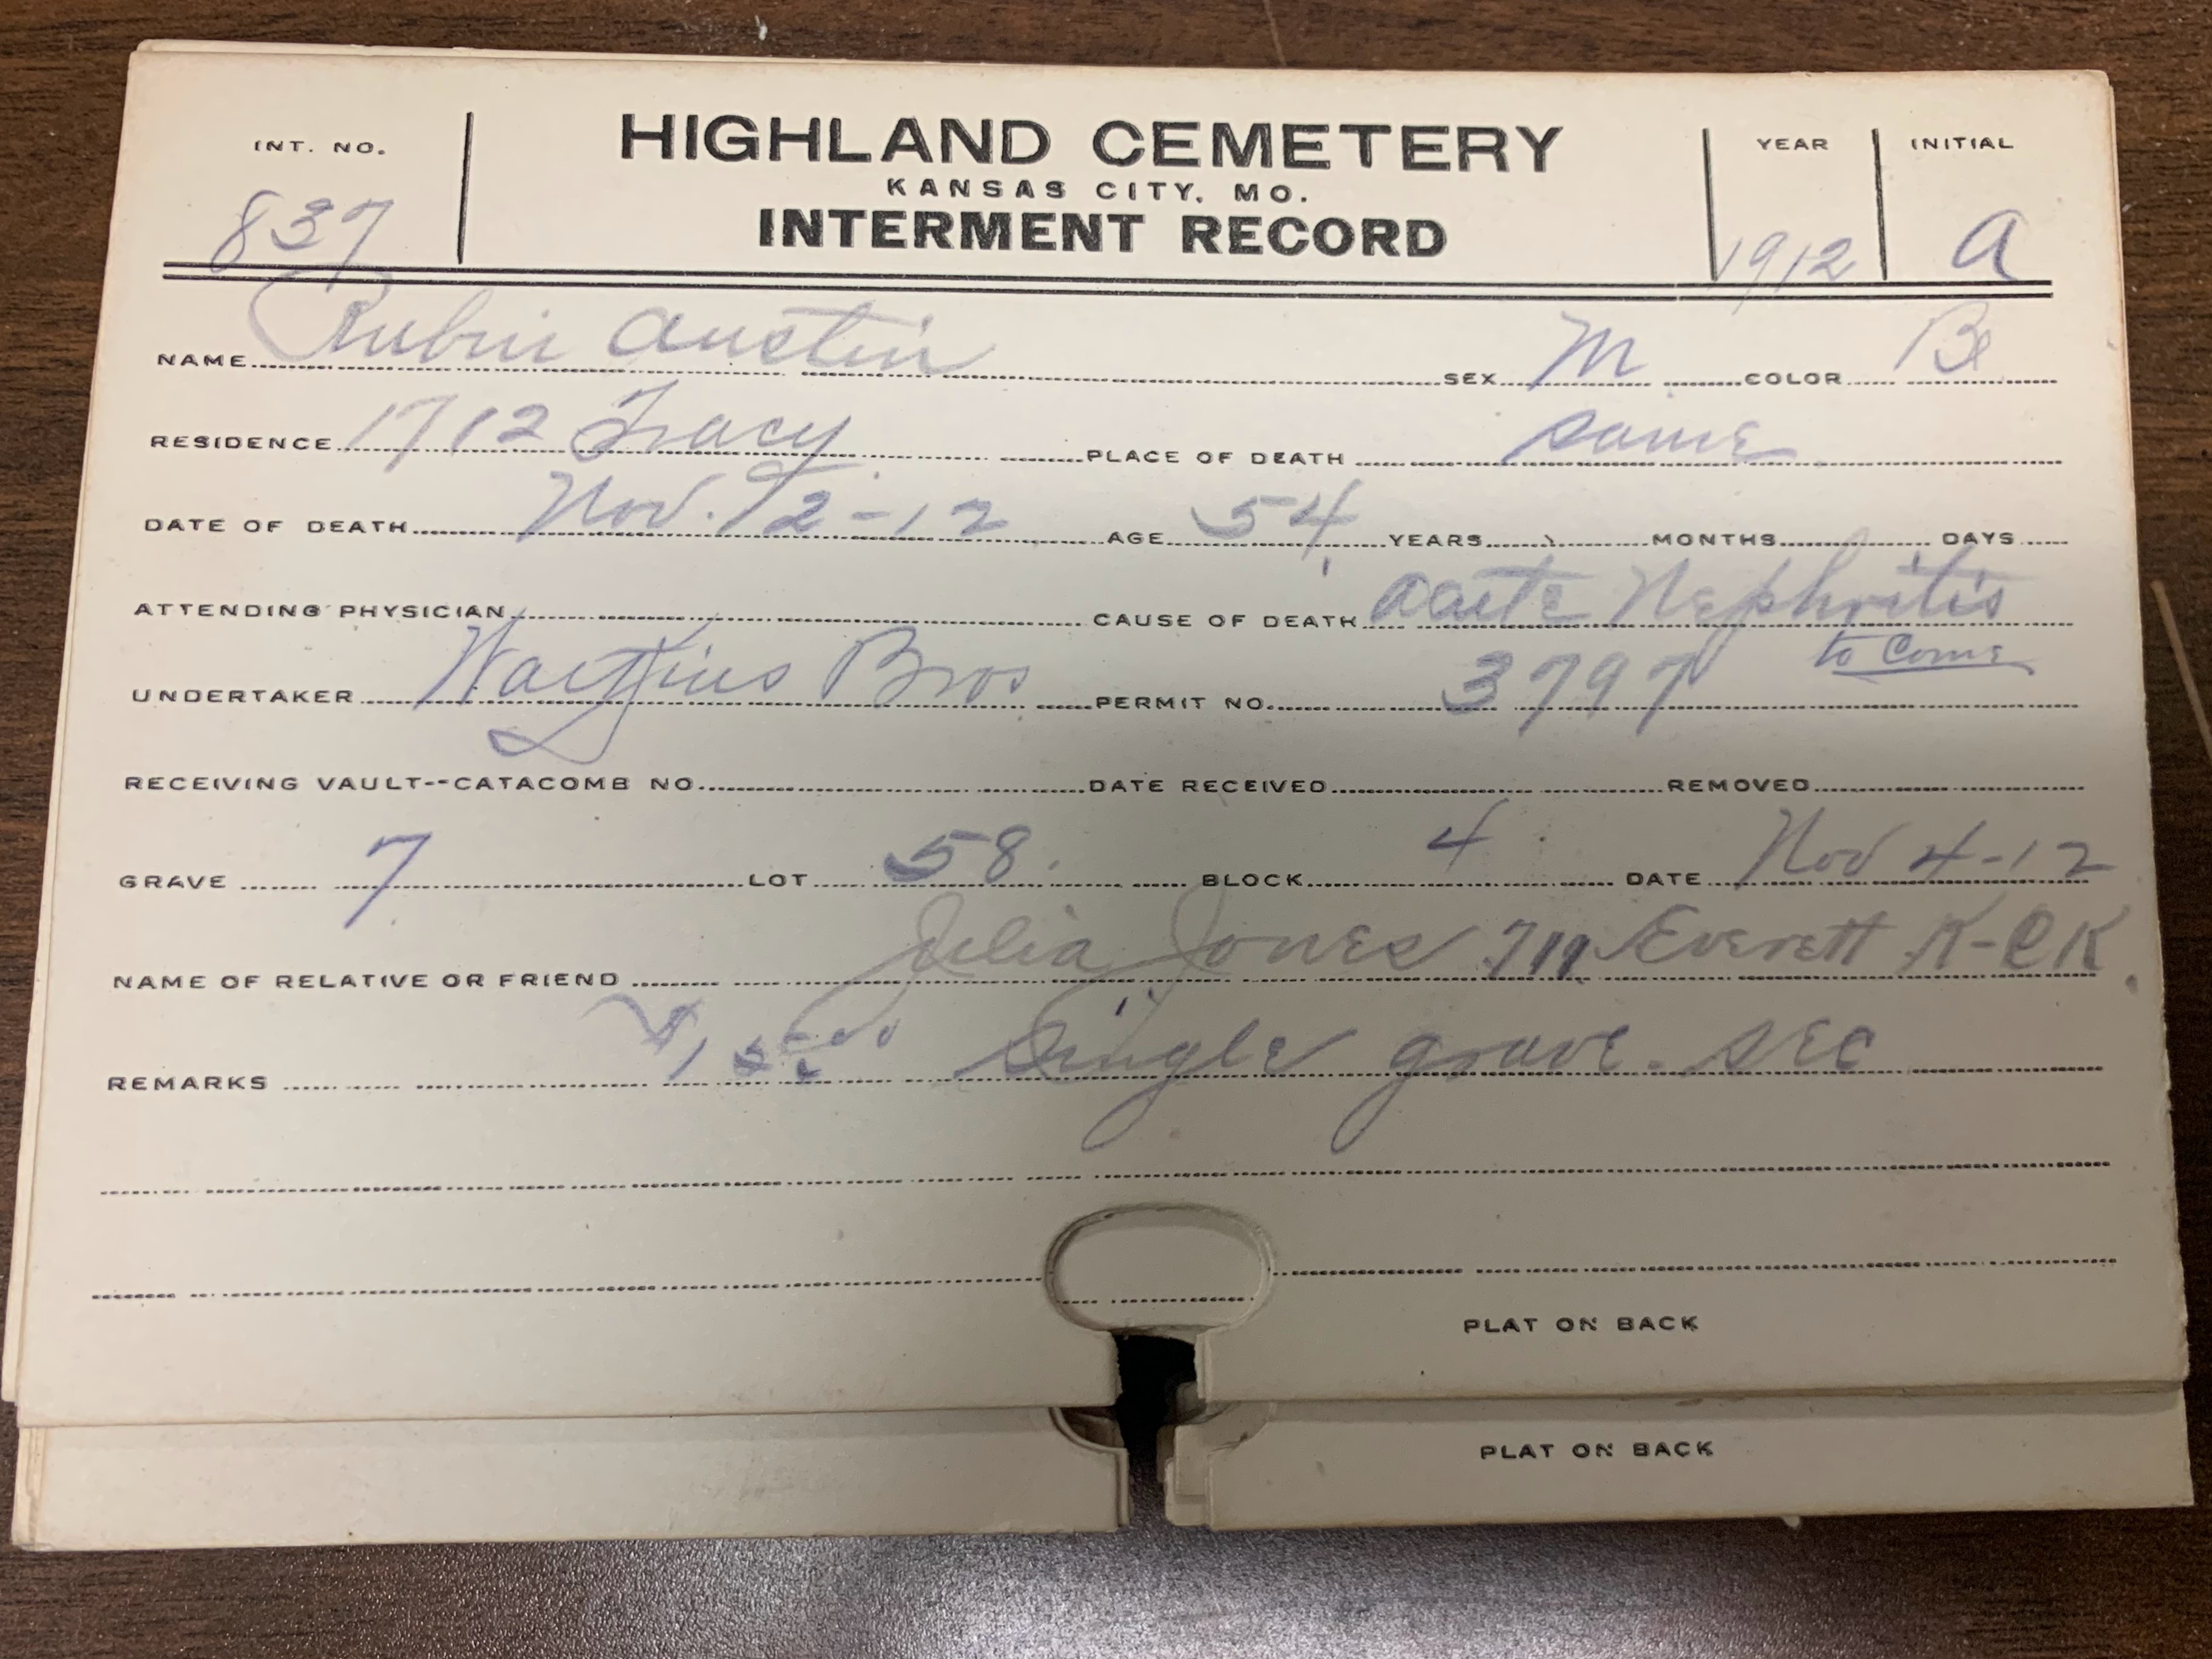 INT. NO. HIGHLAND CEMETERY YEAR INITIAL
KANSAS CITY, MO.
837 INTERMENT RECORD 1912 A
NAME Rubin Austin SEX M COLOR
RESIDENCE 1712 Tracy PLACE OF DEATH same
DATE OF DEATH Nov. 2-12 AGE 54 YEARS MONTHS DAYS
ATTENDING PHYSICIAN CAUSE OF DEATH Acute Nephritis
to come
UNDERTAKER Watkins Bros PERMIT NO. 3797
RECEIVING VAULT--CATACOMB NO. DATE RECEIVED REMOVED
GRAVE 7 LOT 58 BLOCK 4 DATE Nov 4-12
NAME OF RELATIVE OR FRIEND Julia Jones Everett K-C K.
REMARKS Single grave. sec
PLAT ON BACK
PLAT ON BACK